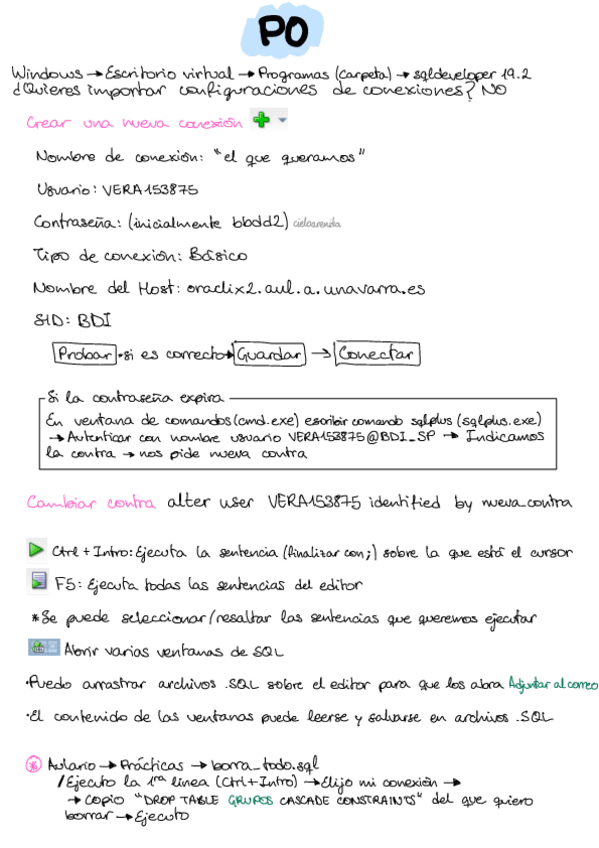 P0
Windows → Escritorio virtual → Programas (carpeta) → sqldeveloper 19.2
¿Quieres importar configuraciones de conexiones? NO
Crear una nueva conexión
Nombre de conexión: "el que queramos"
Usuario: VERA153875
Contraseña: (inicialmente bbdd2) cieloarenita
Tipo de conexión: Básico
Nombre del Host: oraclix2.aul.a.unavarra.es
SID: BDI
Probar • si es correcto → Guardar → Conectar
Si la contraseña expira
En ventana de comandos (cmd.exe) escribir comando sqlplus (sqlplus.exe)
→ Autenticar con nombre usuario VERA153875@BDI_SP → Indicamos
la contra → nos pide nueva contra
Cambiar contra alter user VERA153875 identified by nueva_contra
Ctrl + Intro: Ejecuta la sentencia (finalizar con ;) sobre la que está el cursor
F5: Ejecuta todas las sentencias del editor
* Se puede seleccionar/resaltar las sentencias que queremos ejecutar
Abrir varias ventanas de SQL
• Puedo arrastrar archivos .SQL sobre el editor para que los abra Adjuntar al correo
• El contenido de las ventanas puede leerse y salvarse en archivos .SQL
* Aulario → Prácticas → borra_todo.sql
/ Ejecuto la 1ra linea (Ctrl + Intro) → Elijo mi conexión →
→ Copio "DROP TABLE GRUPOS CASCADE CONSTRAINTS" del que quiero
borrar → Ejecuto